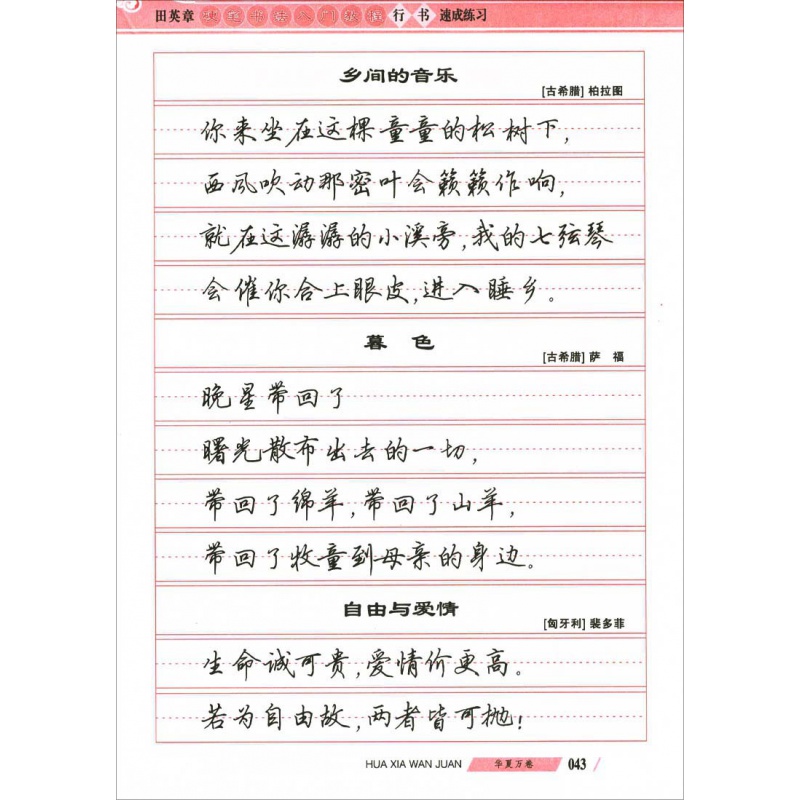 田英章硬笔书法入门教程 行书 速成练习
乡间的音乐
[古希腊] 柏拉图
你来坐在这棵童童的松树下，
西风吹动那密叶会簌簌作响，
就在这潺潺的小溪旁，我的七弦琴
会催你合上眼皮，进入睡乡。
暮 色
[古希腊] 萨 福
晚星带回了
曙光散布出去的一切，
带回了绵羊，带回了山羊，
带回了牧童到母亲的身边。
自由与爱情
[匈牙利] 裴多菲
生命诚可贵，爱情价更高。
若为自由故，两者皆可抛！
HUA XIA WAN JUAN 华夏万卷 043